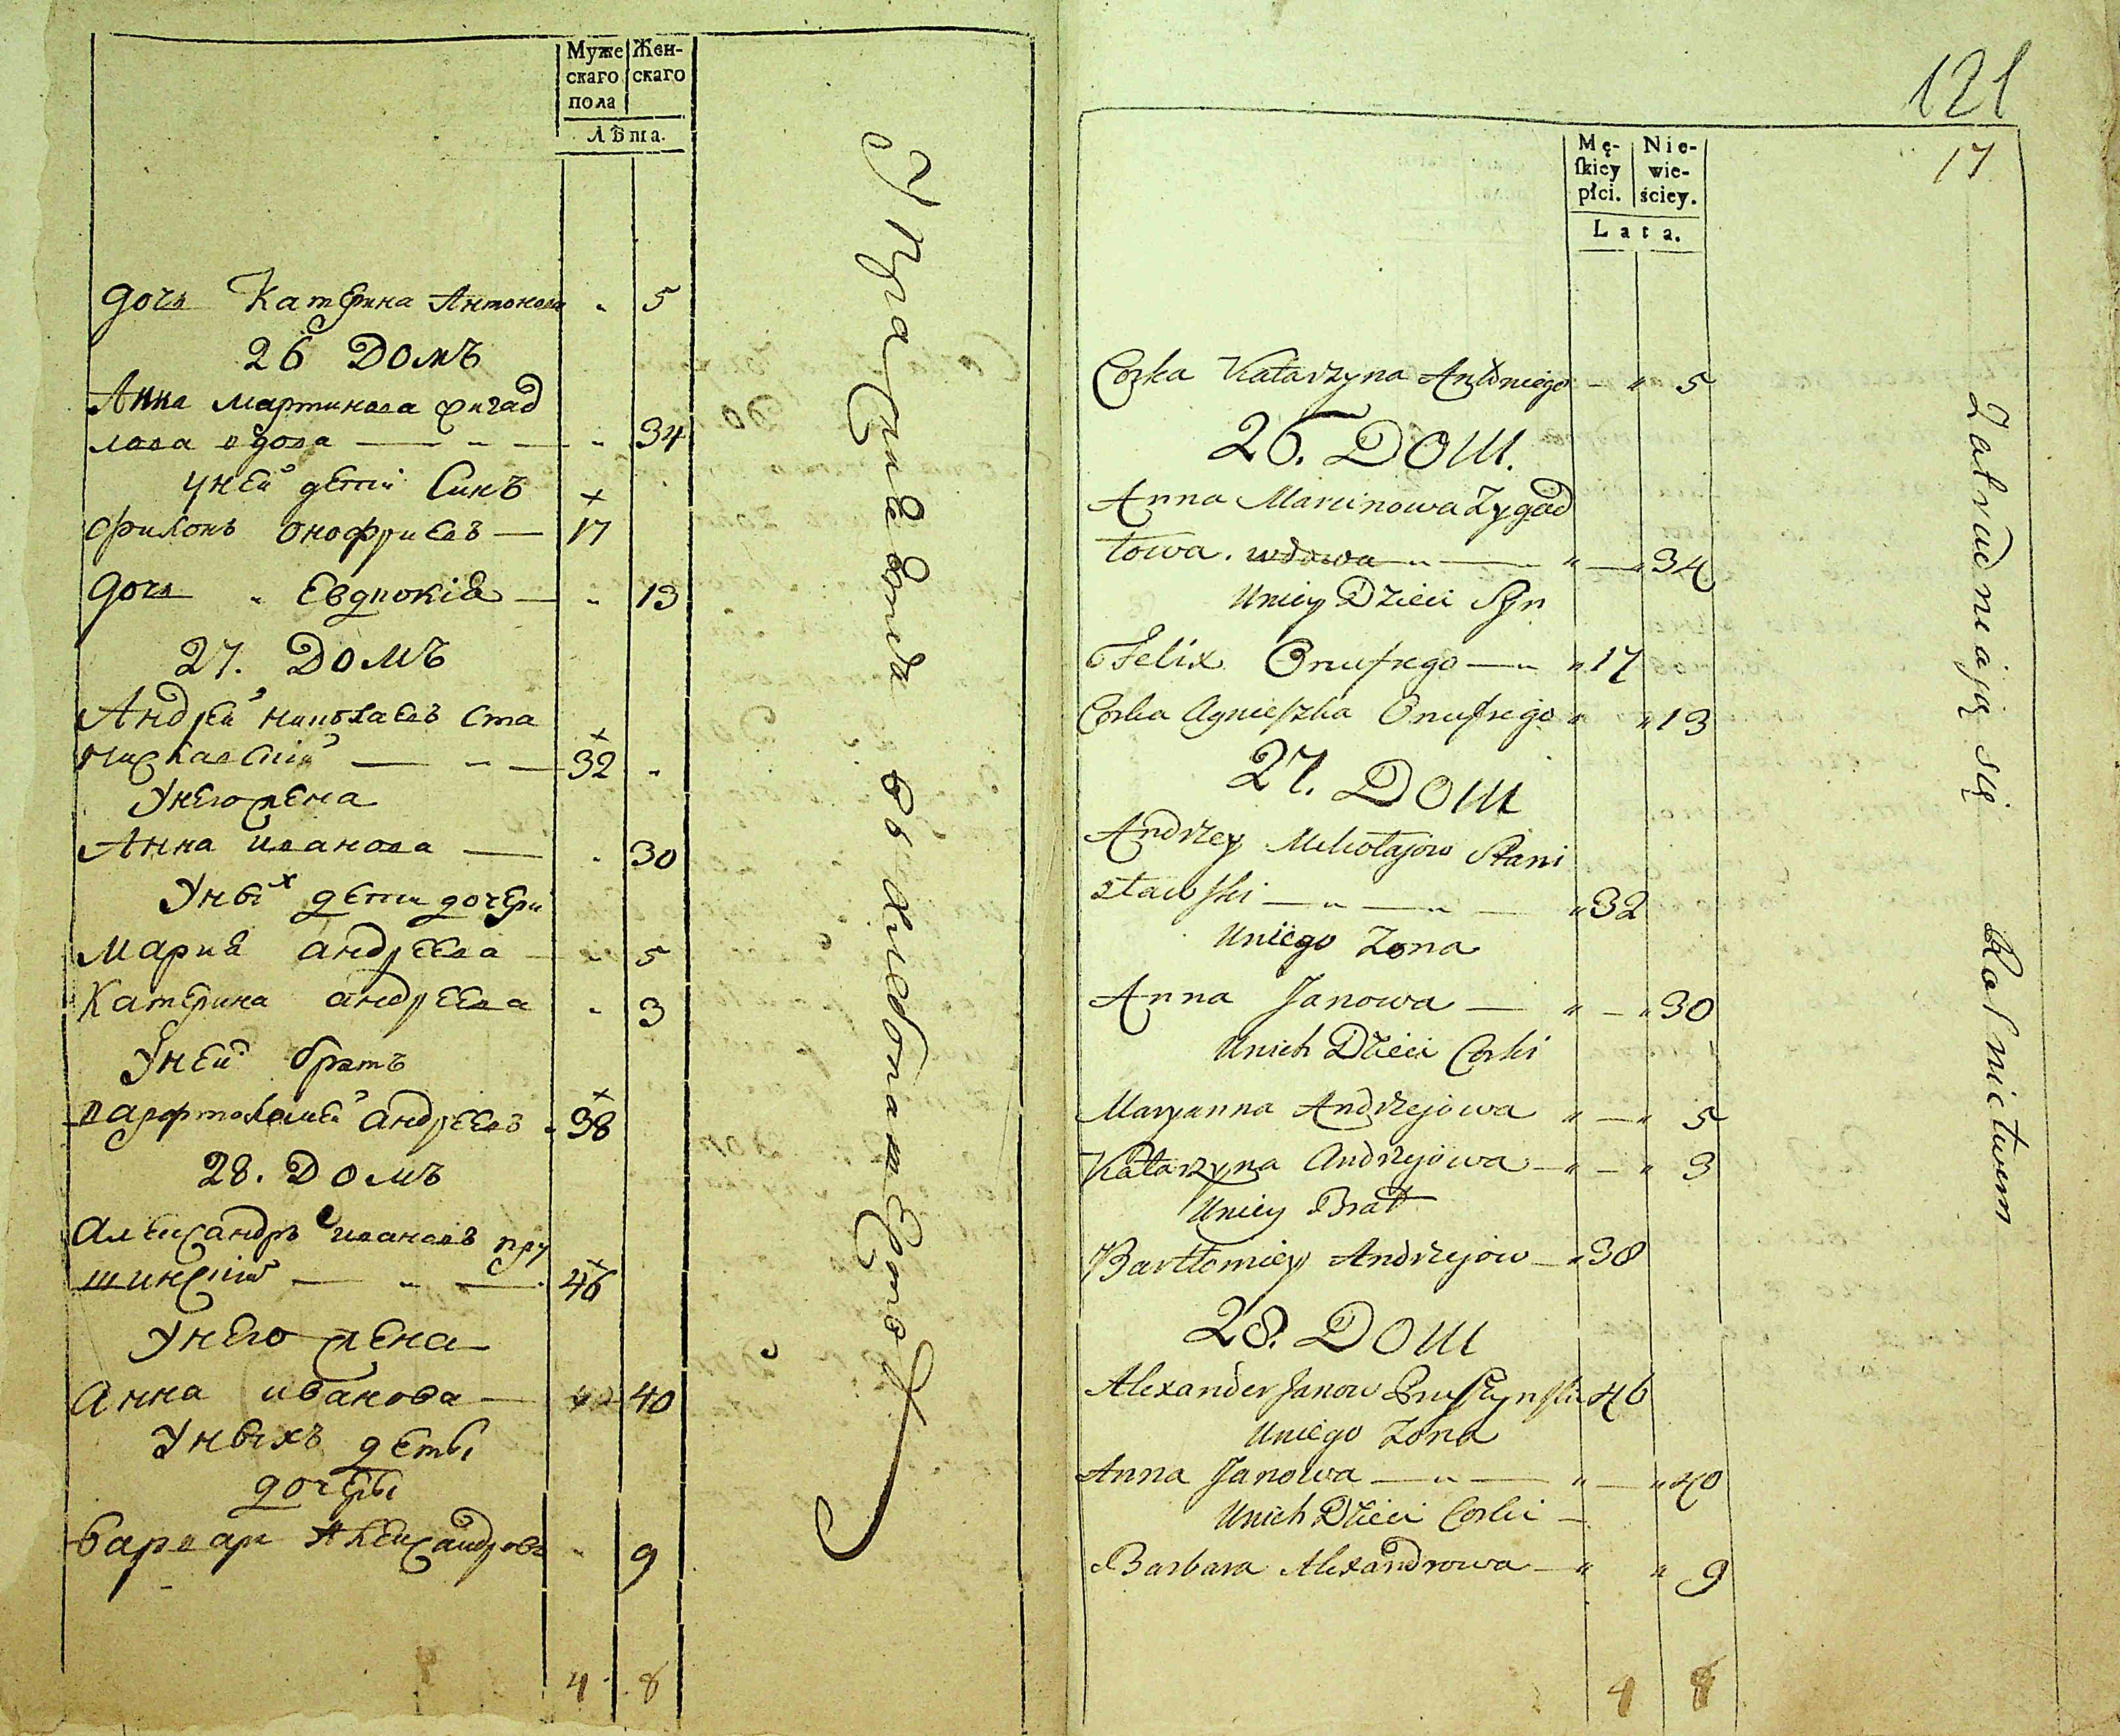 Муже
скаго
пола
Жен-
скаго
Лѣта.
дочь Катерина Антонова " 5
26 Домъ
Анна Мартинова Жигад
лова вдова — " — " 34
у ней дети Синъ
Филонъ Онофриевъ — 17
дочь " Евдокія — " 13
27. Домъ
Андрей Николаевъ Ста
ниславский — " — 32 "
У него жена
Анна Иванова — " 30
У них дети дочери
Мария Андреева — " 5
Катерина Андреева " 3
У ней братъ
Варфтоломей Андреевъ " 38
28. Домъ
Александръ Ивановъ Пру
шинский — " — 46
У него жена
Анна Иванова — 40
У ныхъ деты
дочеры
Барвар Александрова " 9
4 8
Упражняются в хлебопашество
121
17
Mę-
skiey
płci.
Nie-
wie-
ściey.
Lata.
Corka Katarzyna Antoniego — " 5
26. Dom.
Anna Marcinowa Zygad
łowa. wdowa — " — " — " 34
U niey Dzieci Syn
Felix Onufrego — " " 17
Corka Agnieszka Onufrego " " 13
27. Dom
Andrzey Mikołajow Stani
sławski — " — " — " 32
U niego Zona
Anna Janowa — " — " 30
U nich Dzieci Corki
Maryanna Andrzejowa " — " 5
Katarzyna Andrzejowa — " — " 3
U niey Brat
Bartłomiey Andrzejow — " 38
28. Dom
Alexander Janow Pruszynski 46
U niego Zona
Anna Janowa — " — " — " 40
U nich Dzieci Corki —
Barbara Alexandrowa — " " 9
4 8
Zatrudniają się Rolnictwem